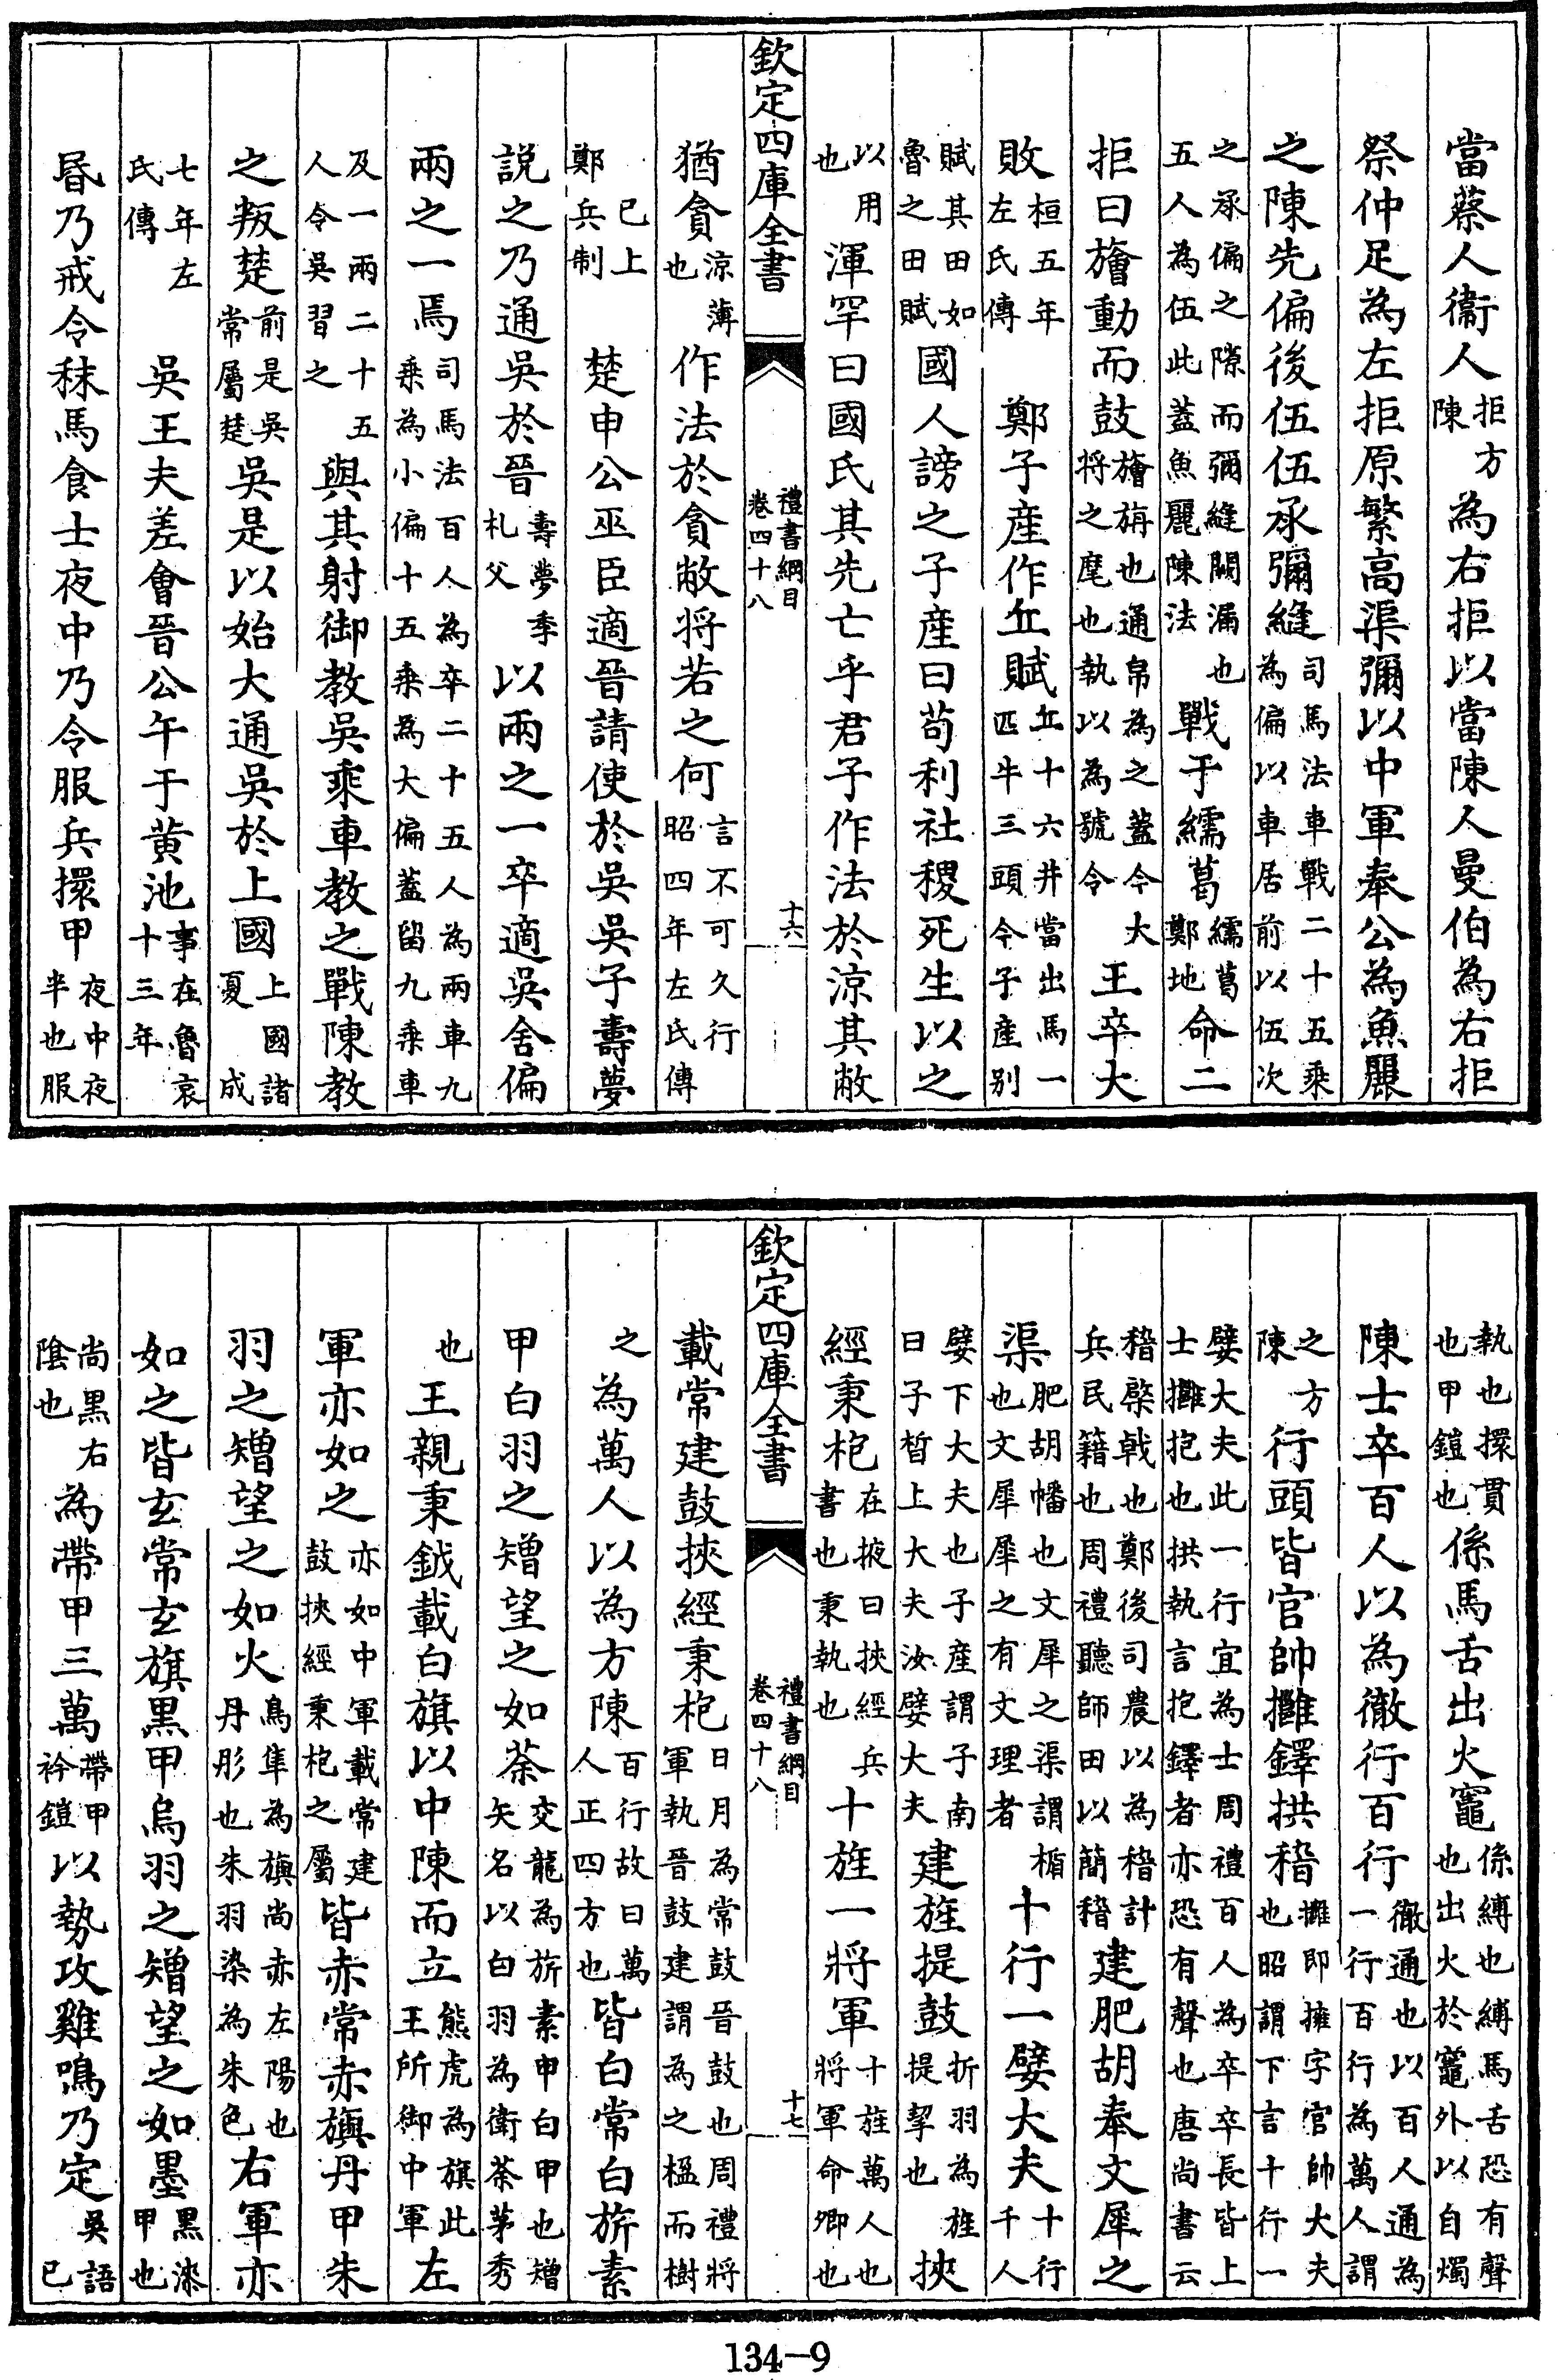 當蔡人衞人拒方陳為右拒以當陳人曼伯為右拒
祭仲足為左拒原繁高渠彌以中軍奉公為魚麗
之陳先偏後伍伍承彌縫司馬法車戰二十五乘為偏以車居前以伍次
之承偏之隙而彌縫闕漏也五人為伍此蓋魚麗陳法戰于繻葛繻葛鄭地命二
拒曰旝動而鼓旝旃也通帛為之蓋今大將之麾也執以為號令王卒大
敗桓五年左氏傳 鄭子産作丘賦丘十六井當出馬一匹牛三頭今子産别
賦其田如魯之田賦國人謗之子産曰苟利社稷死生以之
以用也渾罕曰國氏其先亡乎君子作法於涼其敝
欽定四庫全書 禮書綱目 卷四十八 十六
猶貪涼薄也作法於貪敝將若之何言不可久行昭四年左氏傳
已上鄭兵制 楚申公巫臣適晉請使於吳吳子壽夢
説之乃通吳於晉壽夢季札父以兩之一卒適吳舍偏
兩之一焉司馬法百人為卒二十五人為兩車九乘為小偏十五乘為大偏蓋留九乘車
及一兩二十五人令吳習之與其射御教吳乘車教之戰陳教
之叛楚前是吳常屬楚吳是以始大通吳於上國上國諸夏 成
七年左氏傳 吳王夫差會晉公午于黄池事在魯哀十三年
昬乃戒令秣馬食士夜中乃令服兵擐甲夜中夜半也服
執也擐貫也甲鎧也係馬舌出火竈係縛也縛馬舌恐有聲也出火於竈外以自燭
陳士卒百人以為徹行百行徹通也以百人通為一行百行為萬人謂
之方陳行頭皆官帥㩴鐸拱稽㩴即擁字官帥大夫也昭謂下言十行一
嬖大夫此一行宜為士周禮百人為卒卒長皆上士㩴抱也拱執言抱鐸者亦恐有聲也唐尚書云
稽棨戟也鄭後司農以為稽計兵民籍也周禮聽師田以簡稽建肥胡奉文犀之
渠肥胡幡也文犀之渠謂楯也文犀犀之有文理者十行一嬖大夫十行千人
嬖下大夫也子産謂子南曰子晳上大夫汝嬖大夫建旌提鼓折羽為旌提挈也挾
經秉枹在掖曰挾經兵書也秉執也十旌一將軍十旌萬人也將軍命卿也
欽定四庫全書 禮書綱目 卷四十八 十七
載常建鼓挾經秉枹日月為常鼓晉鼓也周禮將軍執晉鼓建謂為之楹而樹
之為萬人以為方陳百行故曰萬人正四方也皆白常白旂素
甲白羽之矰望之如荼交龍為旂素甲白甲也矰矢名以白羽為衛荼茅秀
也王親秉鉞載白旗以中陳而立熊虎為旗此王所御中軍左
軍亦如之亦如中軍載常建鼓挾經秉枹之屬皆赤常赤旟丹甲朱
羽之矰望之如火鳥隼為旟尚赤左陽也丹彤也朱羽染為朱色右軍亦
如之皆玄常玄旗黒甲烏羽之矰望之如墨黒漆甲也
尚黒右陰也為帶甲三萬帶甲衿鎧以勢攻雞鳴乃定吳語已
134-9